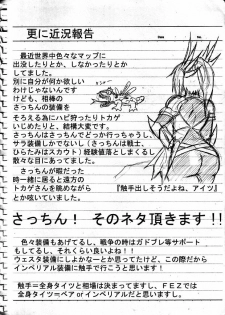 更に近況報告
最近世界中色々なマップに
出没したりとか、しなかったりとか
してました。
別に自分が何か欲しい
わけじゃないんです
けども、相棒の
さっちんの装備を
そろえる為にハピ狩ったりトカゲ
いじめたりと、結構大変です。
さっちんはさっちんでどっか行っちゃうし、
サラ装備しかでないし（さっちんは戦士、
ひらたみはスカウト）経験値落としまくるし
散々な目にあってました。
さっちんが暇だった
時一緒に居ると遠方の
トカゲさんを眺めながら 『触手出しそうだよね、アイツ』
とか呟いていました。
さっちん！ そのネタ頂きます!!
色々装備もあげてるし、戦争の時はガドブレ等サポート
もしてるし、それくらい良いよね！！
ウェスタ装備にしよかなーとか思ってたけど、この際だから
インペリアル装備に触手で行こうと思います！
触手＝全身タイツと相場は決まってますし、ＦＥＺでは
全身タイツ＝ベアorインペリアルだと思いますし。